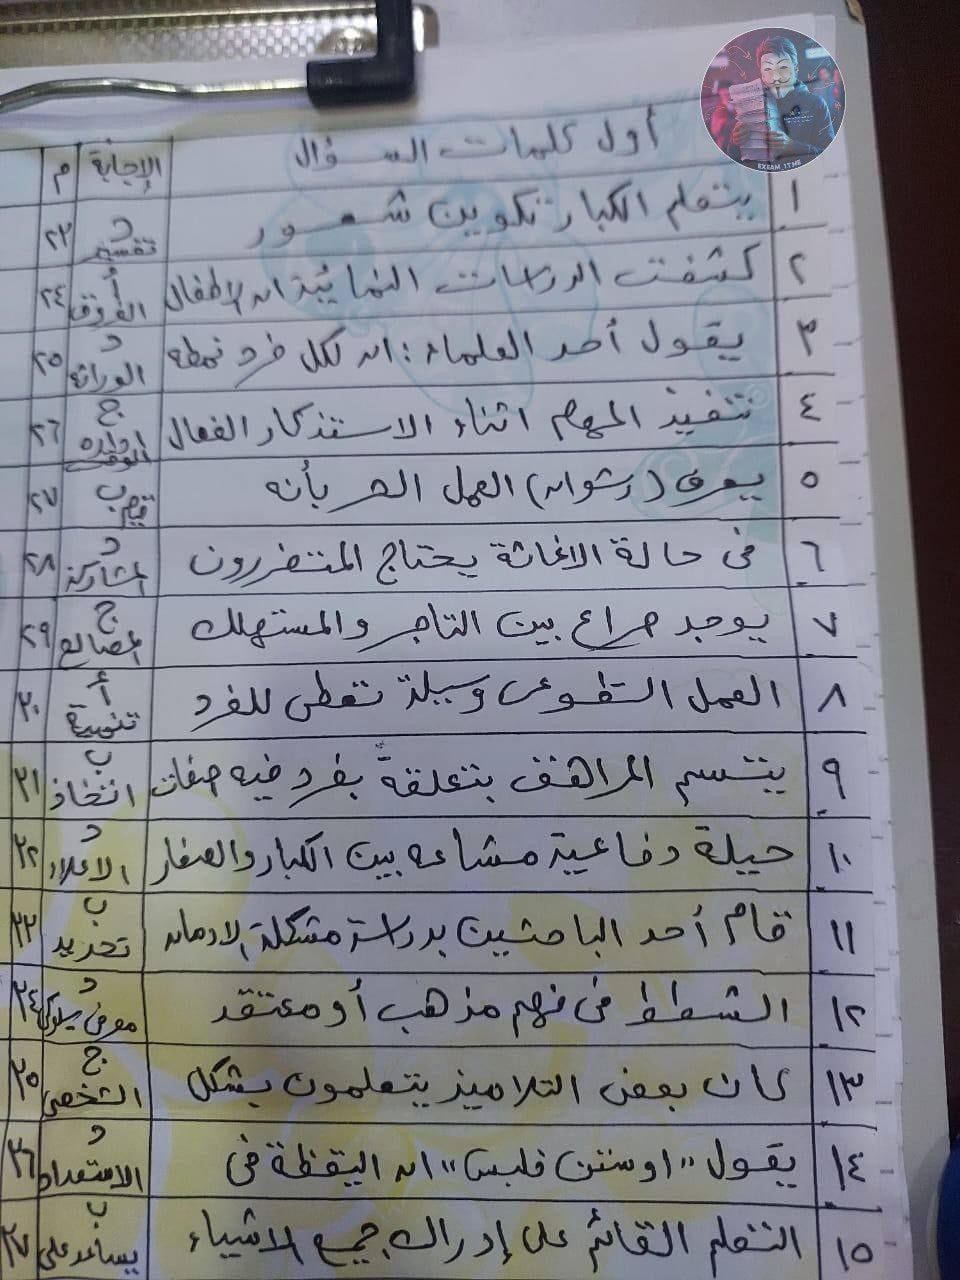 أول كلمات السؤال الإجابة م
١ يتعلم الكبار تكوين شعور د تفسير ٢٣
٢ كشفت الدراسات النمائية ان الاطفال أ الفروق ٢٤
٣ يقول أحد العلماء: ان لكل فرد نمطه د الوراثة ٢٥
٤ تنفيذ المهام اثناء الاستذكار الفعال ج إدارة الوقت ٢٦
٥ يعرف (رشوان) العمل الحر بأنه ب قيام ٢٧
٦ فى حالة الاغاثة يحتاج المتضررون د المشاركة ٢٨
٧ يوجد صراع بين التاجر والمستهلك ج المصالح ٢٩
٨ العمل التطوعى وسيلة تعطى للفرد أ تنمية ٣٠
٩ يتسم المراهق بتعلقة بفرد فيه صفات ب اتخاذ ٣١
١٠ حيلة دفاعية مشاعه بين الكبار والصغار د الاعلاء ٣٢
١١ قام أحد الباحثين بدراسة مشكلة الادمان ب تحديد ٣٣
١٢ الشطط فى فهم مذهب أو معتقد د معرفى سلوكى ٣٤
١٣ كان بعض التلاميذ يتعلمون بشكل ج الشخصى ٣٥
١٤ يقول "اوستن فلبس" ان اليقظة فى د الاستعداد ٣٦
١٥ التعلم القائم على إدراك جميع الاشياء ب يساعد على ٣٧
EXEAM_1TME